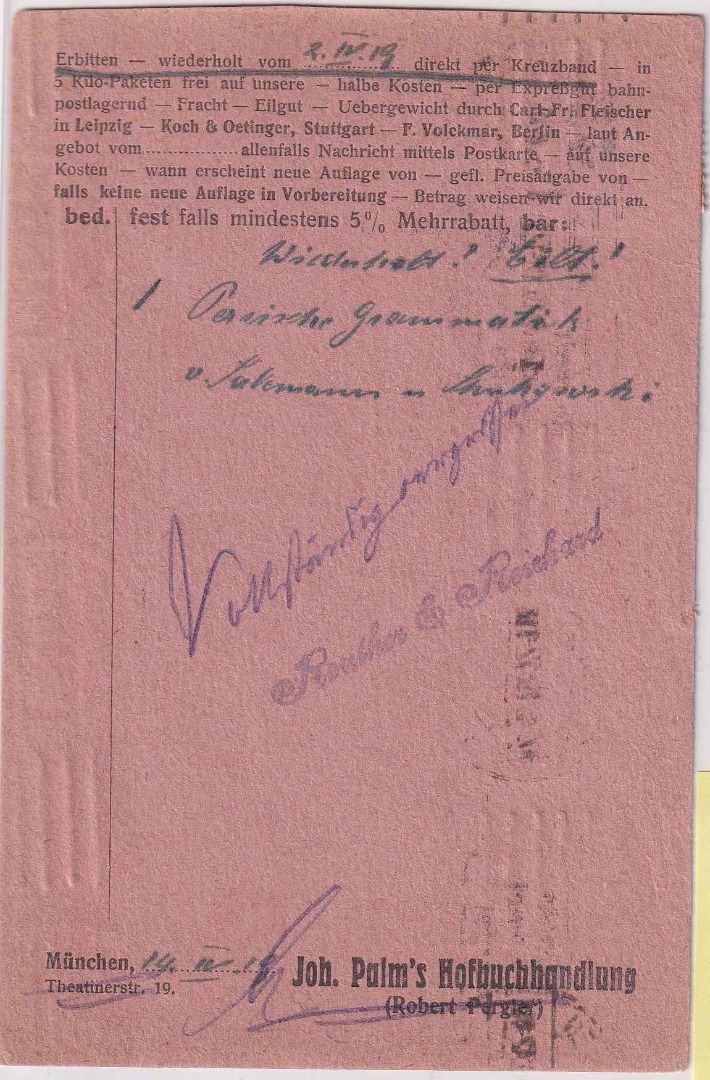 Erbitten — wiederholt vom 2. IV 19 direkt per Kreuzband — in
5 Kilo-Paketen frei auf unsere — halbe Kosten — per Expreßgut bahn-
postlagernd — Fracht — Eilgut — Uebergewicht durch Carl Fr. Fleischer
in Leipzig — Koch & Oetinger, Stuttgart — F. Volckmar, Berlin — laut An-
gebot vom............... allenfalls Nachricht mittels Postkarte — auf unsere
Kosten — wann erscheint neue Auflage von — gefl. Preisangabe von —
falls keine neue Auflage in Vorbereitung — Betrag weisen wir direkt an.
bed. fest falls mindestens 5% Mehrrabatt, bar:
Wiederholt! Eilt!
1 Persische Grammatik
v. Salemann u Shukowski
Vollständig vergriffen
Reuther & Reichard
München, 14. IV 19
Theatinerstr. 19.
Joh. Palm's Hofbuchhandlung
(Robert Pergler)